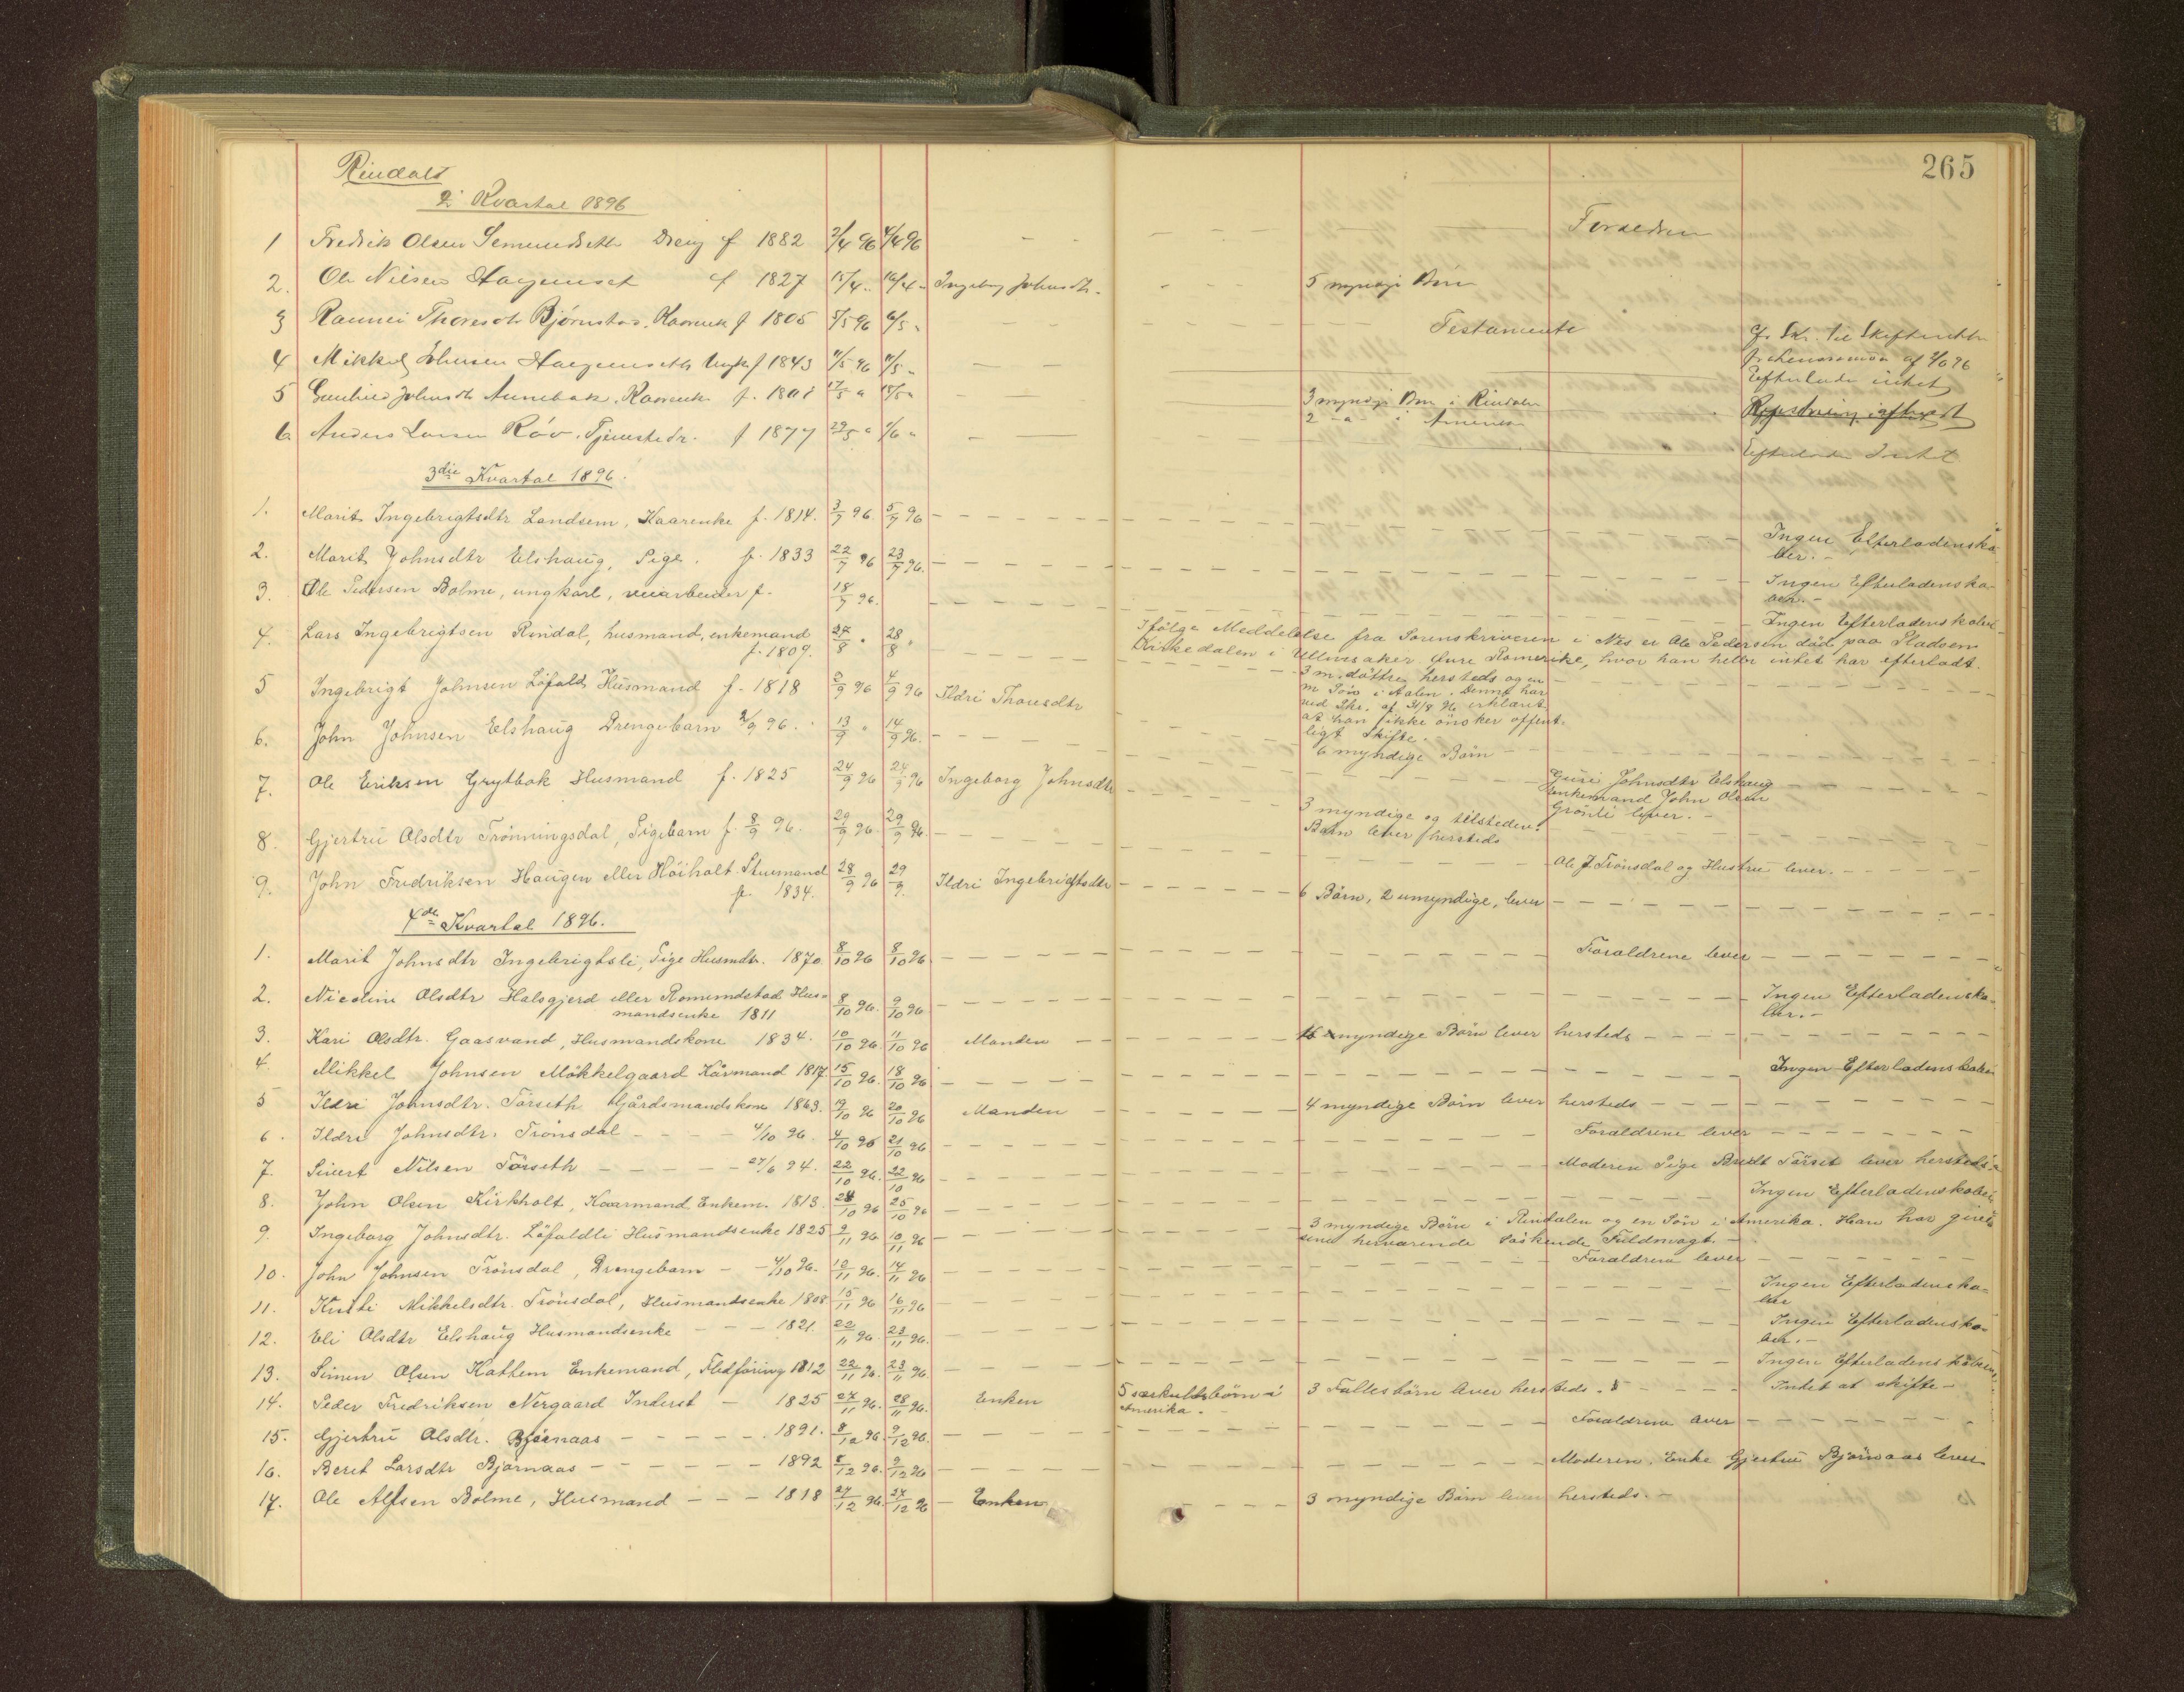 265
Rindals
2 Kvartal 1896
1 Fredrik Olsen Semundseth Dreng f 1882 2/4 96 4/4 96 - - - - Forældren
2. Ole Nilsen f 1827 15/4 " 16/4 " Ingeborg Johnsdtr. - - 5 myndige Börn
3 Thoresdtr Björnstad, Kaarenk f 1805 5/5 96 6/5 " - - - Testamente
Skr. til Skifteretten
af 96
4 Mikkel Johnsen Ungk f 1843 11/5 96 11/5 " - - Efterlader intet
5 Gunhild Johnsdtr Aunebak, Kaarenk f. 1808 17/5 " 18/5 " - - 3 myndige Börn i Rindalen
2 -"- i Amerika
6 Anders Larsen Röv, Tjenestedr. f 1877 29/5 " 1/6 " - - Efterlader Intet
3die Kvartal 1896.
1. Marit Ingebrigtsdtr Landsem, Kaarenke f. 1814. 3/7 96. 5/7 96 - - - Ingen Efterladenska-
ber. -
2. Marit Johnsdtr Elshaug, Pige. f. 1833 22/7 96 23/7 96. - - - Ingen Efterladenska-
ber. -
3. Ole Pedersen Bolme, ungkarl, veiarbeider f. 18/7 96. - - - Ingen Efterladenskaber
Ifölge Meddelelse fra Sorenskriveren i Nes er Ole Pedersen död paa Pladsen
Kiskedalen i Ullinsaker Övre Romerike, hvor han heller intet har efterladt.
4. Lars Ingebrigtsen Rindal, husmand, enkemand
f. 1809. 27/8 " 28/8 " - - - 3 m. döttre hersteds og en
m Sön i Aalen. Denne har
ved Skr. af 31/8 96 erklæret
at han ikke önsker offent-
ligt Skifte.
5 Ingebrigt Johnsen Löfald Husmand f. 1818 2/9 96 4/9 96 Ildri Thoresdtr - 6 myndige Börn - -
6. John Johnsen Elshaug Drengebarn 2/9 96. 13/9 " 14/9 96. - - - Guri Johnsdtr Elshaug
enkemand John Olsen
Grönli lever. -
7. Ole Eriksen Grytbak Husmand f. 1825 24/9 96 24/9 96 Ingeborg Johnsdtr - - 3 myndige og tilstedev.
Börn lever hersteds
8. Gjertru Olsdtr Trönningsdal, Pigebarn f. 8/9 96. 29/9 96. 29/9 96. - - - Ole J Trönsdal og Hustru lever. - -
9. John Fredriksen Haugen eller Höiholt Stuemand
f. 1834. 28/9 96 29/9. Ildri Ingebrigtsdtr - - 6 Börn, 2 umyndige, lever - -
4de Kvartal 1896.
1. Marit Johnsdtr Ingebrigtsli, Pige Husmdtr. 1870. 8/10 96 8/10 96 - - - Forældrene lever - - -
2. Nicoline Olsdtr Halsgjerd eller Romundstad Hus-
mandsenke 1811 8/10 96. 9/10 96 - - - Ingen Efterladenska-
ber. -
3. Kari Olsdtr. Gaasvand, Husmandskone 1834. 10/10 96. 11/10 96 Manden - - 6 myndige Börn lever hersteds - - -
4. Mikkel Johnsen Mökkelgaard Kårmand 1817. 15/10 96. 18/10 96 - - - Ingen Efterladenskaber
5 Ildri Johnsdtr. Törseth Gårdsmandskone 1863. 19/10 96 20/10 96 Manden - - 4 myndige Börn lever hersteds - - -
6. Ildri Johnsdtr. Trönsdal - - - 4/10 96. 4/10 96 21/10 96 - - - Forældrene lever - - -
7. Sivert Nilsen Törseth - - - 27/6 94. 22/10 96. 22/10 96 - - - Moderen Pige Beret Törset lever hersteds
8. John Olsen Kirkholt, Kaarmand Enkem. 1813. 24/10 96 25/10 96 - - - Ingen Efterladenskaber
9. Ingeborg Johnsdtr. Löfaldli Husmandsenke 1825 9/11 96. 10/11 96 - - - 3 myndige Börn i Rindalen og en Sön i Amerika. Han har givet
sine herværende Söskende Fuldmagt. -
10. John Johnsen Trönsdal, Drengebarn - - 4/10 96. 12/11 96. 14/11 96 - - - Forældrene lever - - -
11. Kirsti Mikkelsdtr. Trönsdal, Husmandsenke 1808. 15/11 96 16/11 96 - - - Ingen Efterladenska-
ber
12. Eli Olsdtr Elshaug Husmandsenke - - - 1821. 22/11 96. 23/11 96. - - - Ingen Efterladenska-
ber. -
13. Simen Olsen Kathem Enkemand, Fledföring 1812 22/11 96. 23/11 96. - - - Ingen Efterladenskaber
14. Peder Fredriksen Nergaard Inderst - 1825 27/11 96. 28/11 96. Enken 5 særkuldsbörn i
Amerika. - 3 Fællesbörn lever hersteds. - - - Intet at skifte -
15. Gjertru Olsdtr. Björnaas - - - 1891. 8/12 96. 9/12 96. - - - Forældrene lever - - -
16. Beret Larsdtr Björnaas - - - 1892 8/12 96. 9/12 96 - - - Moderen, Enke Gjertru Björnaas lever
17. Ole Alfsen Bolme, Husmand - - - 1818 27/12 96. 27/12 96 - Enken - - - 3 myndige Börn lever hersteds. -